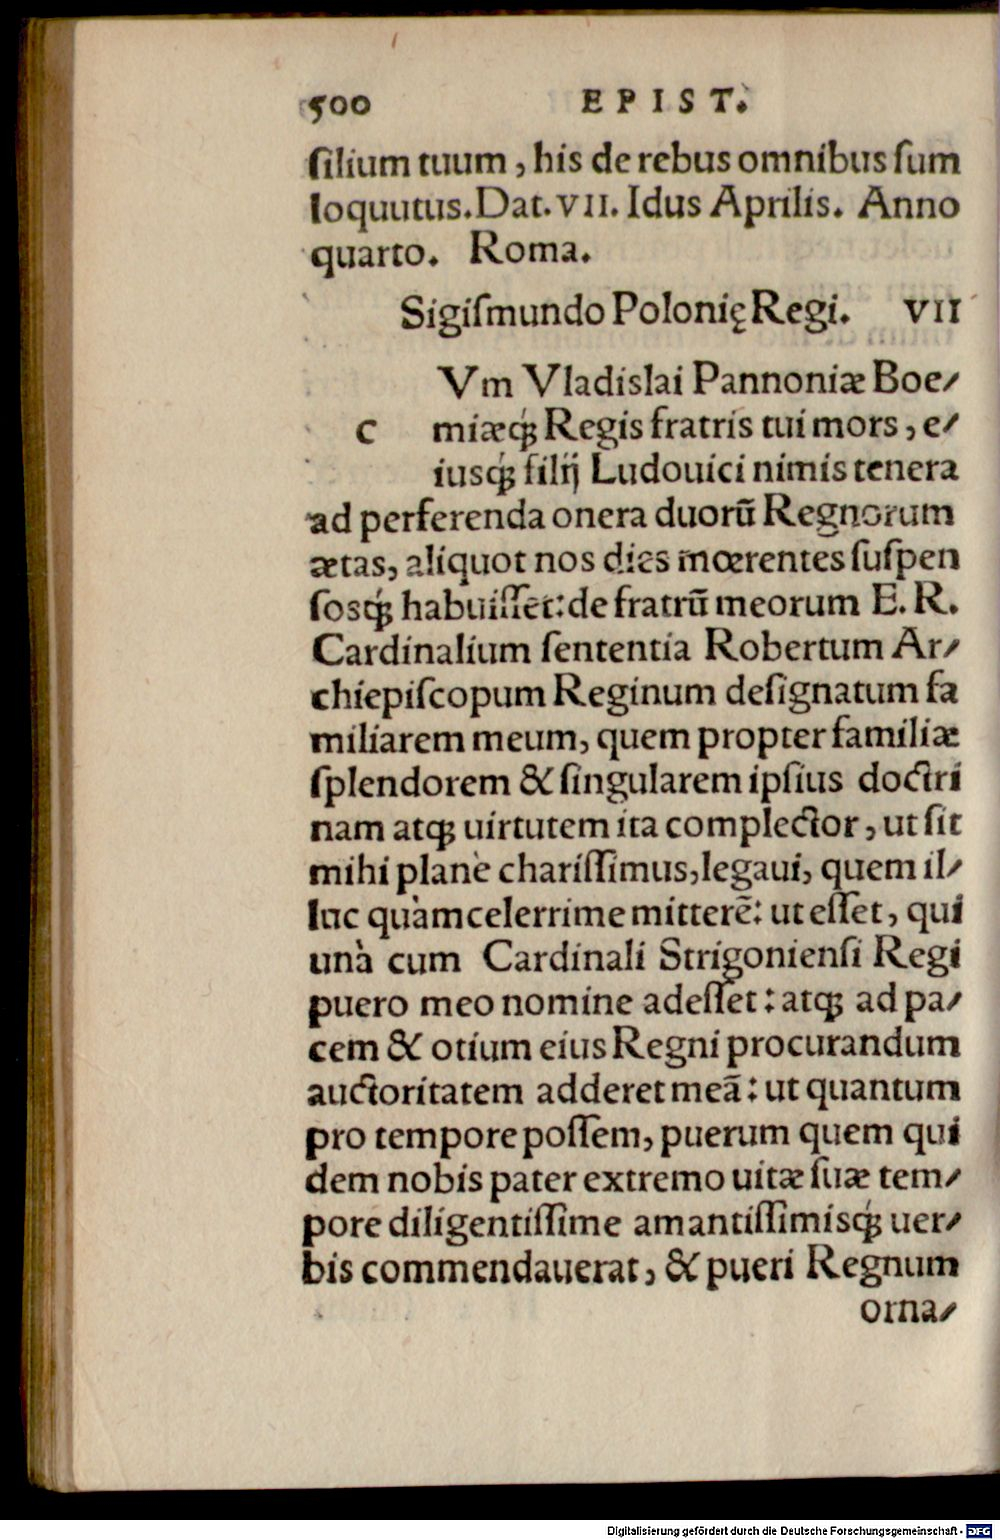 500 EPIST.
ſilium tuum, his de rebus omnibus ſum
loquutus. Dat. VII. Idus Aprilis. Anno
quarto. Roma.
Sigiſmundo Polonię Regi. VII
Vm Vladislai Pannoniæ Boe⸗
c miæq́ꝫ Regis fratris tui mors, e⸗
iusq́ꝫ filij Ludouici nimis tenera
ad perferenda onera duorū Regnorum
ætas, aliquot nos dies mœrentes ſuſpen
ſosq́ꝫ habuiſſet: de fratrū meorum E. R.
Cardinalium ſententia Robertum Ar⸗
chiepiſcopum Reginum deſignatum fa
miliarem meum, quem propter familiæ
ſplendorem & ſingularem ipſius doctri
nam atqꝫ uirtutem ita complector, ut ſit
mihi planè chariſſimus, legaui, quem il⸗
luc quàm celerrime mitterē: ut eſſet, qui
unà cum Cardinali Strigonienſi Regi
puero meo nomine adeſſet: atqꝫ ad pa⸗
cem & otium eius Regni procurandum
auctoritatem adderet meā: ut quantum
pro tempore poſſem, puerum quem qui
dem nobis pater extremo uitæ ſuæ tem⸗
pore diligentiſſime amantiſſimisq́ꝫ uer⸗
bis commendauerat, & pueri Regnum
orna⸗
Digitalisierung gefördert durch die Deutsche Forschungsgemeinschaft - DFG